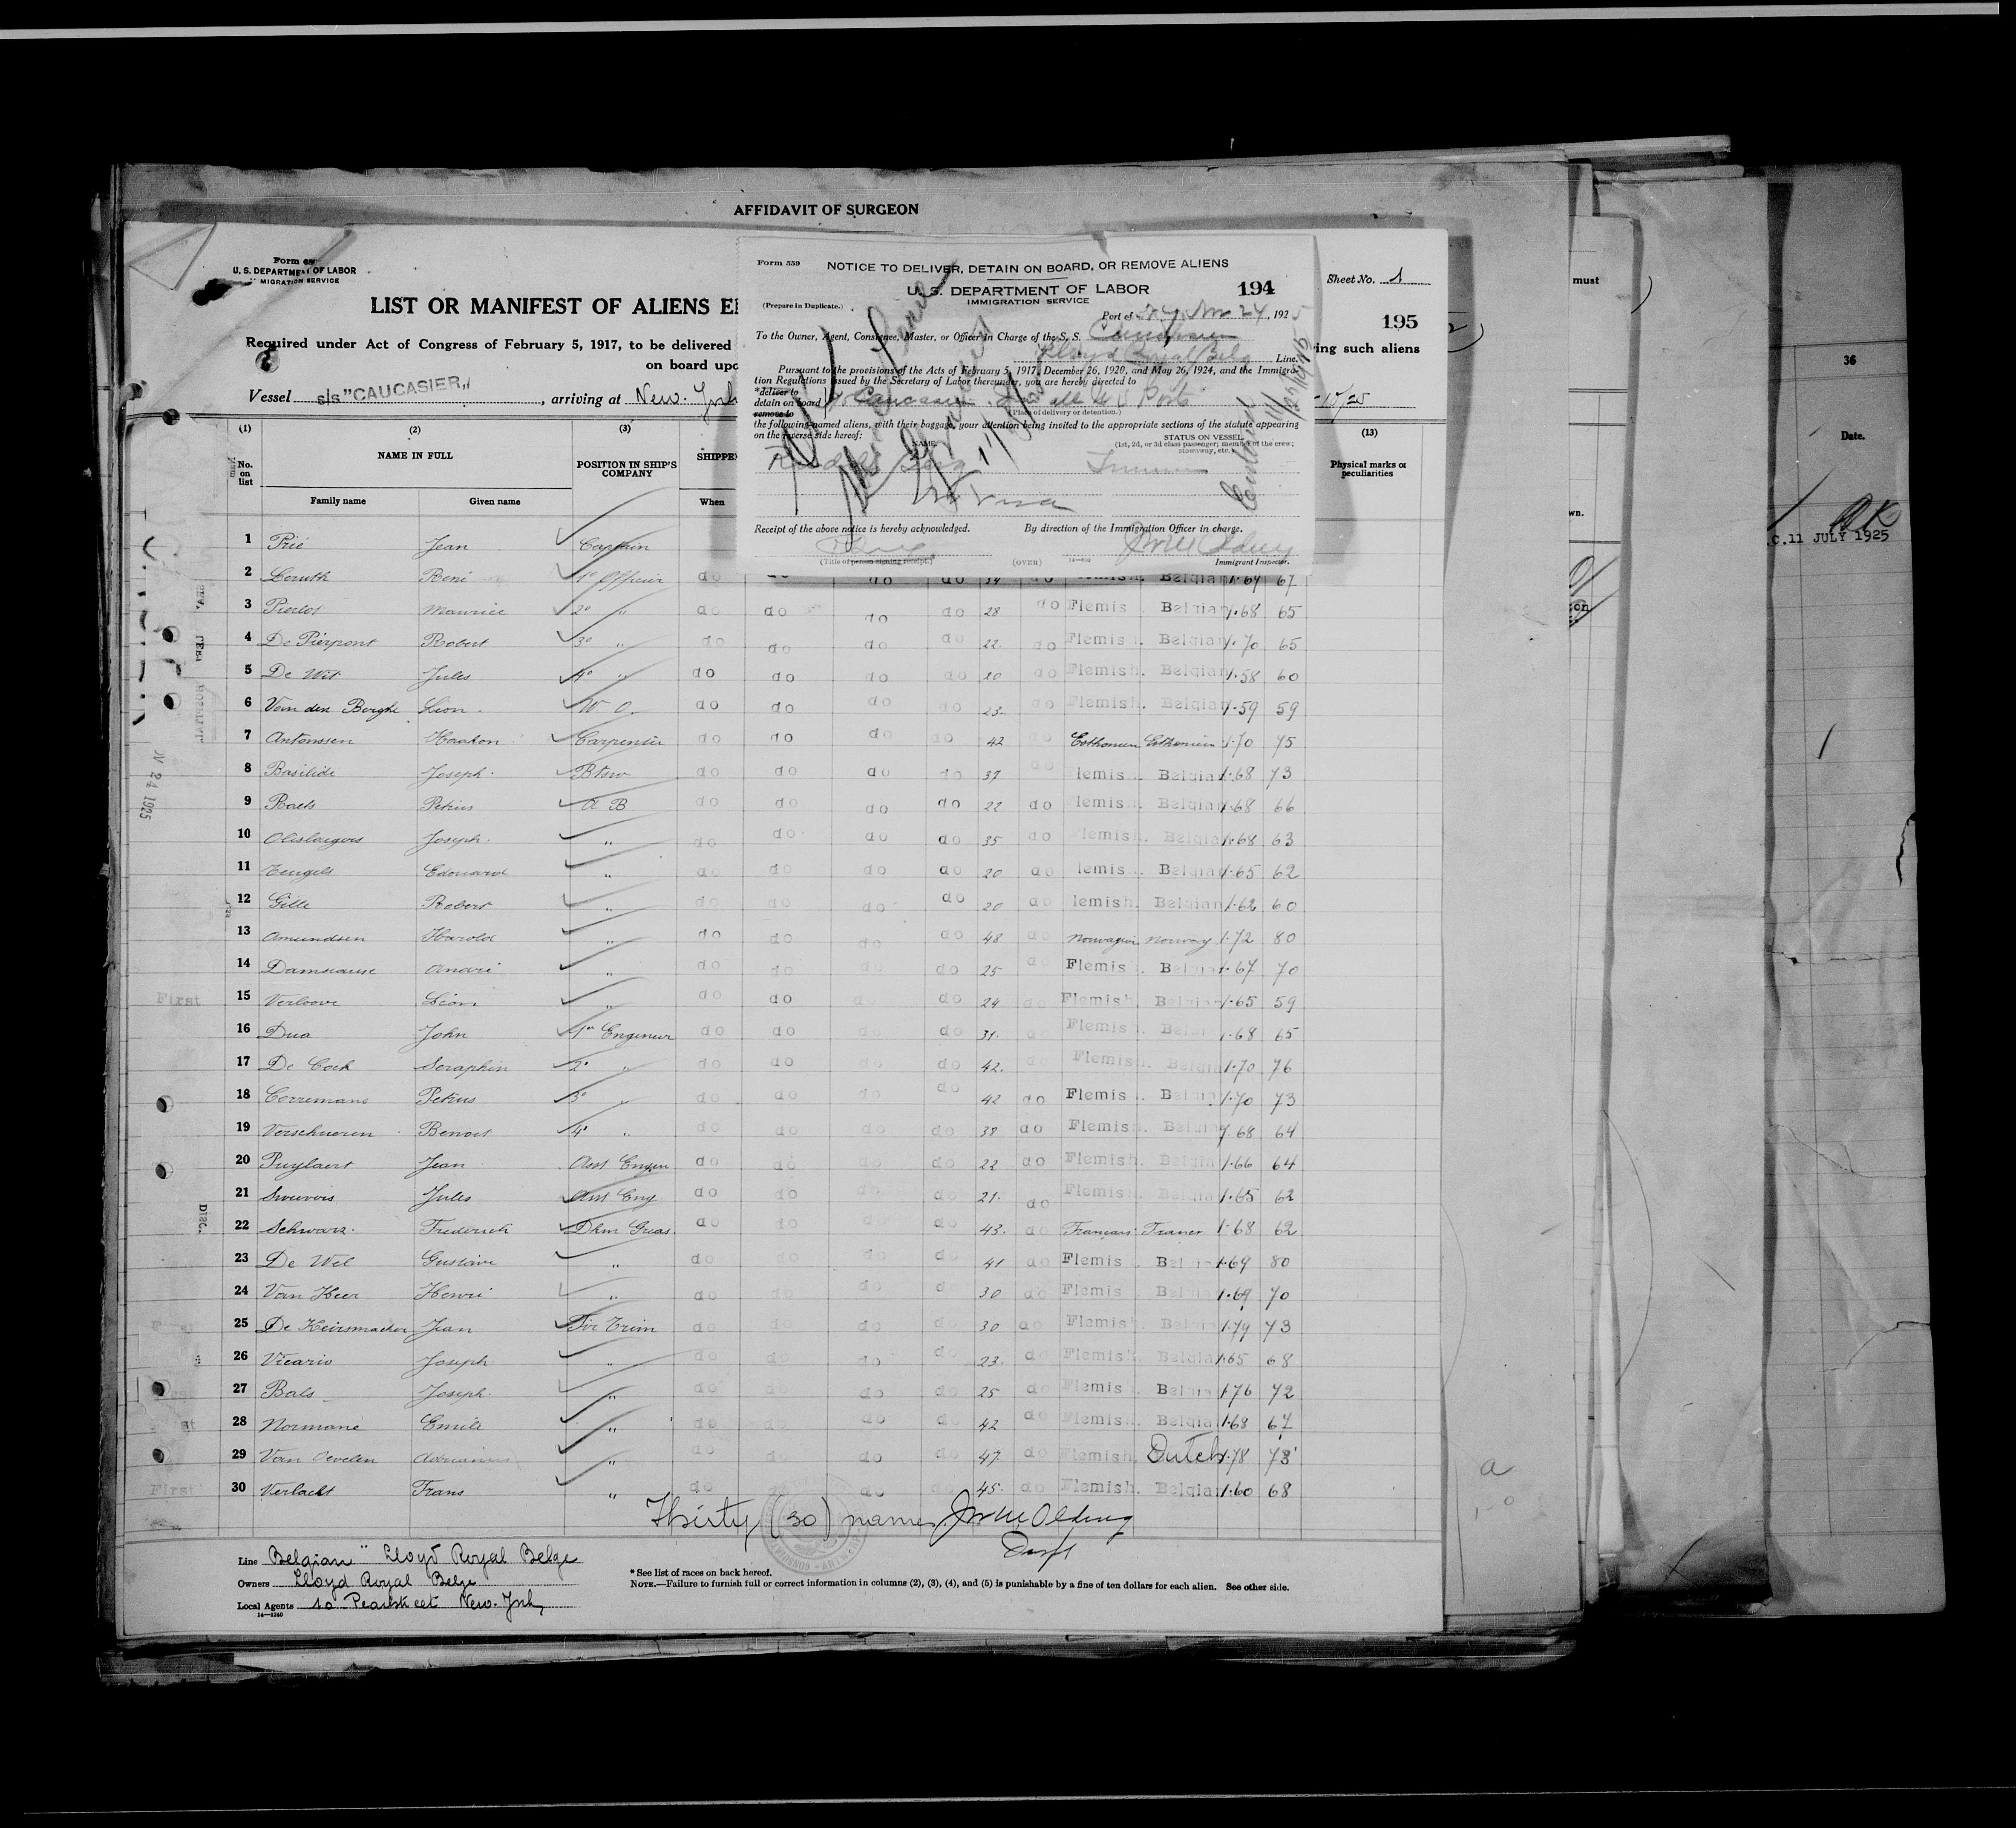 AFFIDAVIT OF SURGEON
U. S. DEPARTMENT OF LABOR
MIGRATION SERVICE
LIST OR MANIFEST OF ALIENS E
Required under Act of Congress of February 5, 1917, to be delivered
on board upo
Vessel s/s "CAUCASIER", arriving at New. York
Form 559
NOTICE TO DELIVER, DETAIN ON BOARD, OR REMOVE ALIENS
U. S. DEPARTMENT OF LABOR
194
IMMIGRATION SERVICE
(Prepare in Duplicate.)
Port of N. Y. Nov 24, 1925
To the Owner, Agent, Consignee, Master, or Officer in Charge of the S. S. Caucasier
Lloyd Royal Belg Line.
Pursuant to the provisions of the Acts of February 5, 1917, December 26, 1920, and May 26, 1924, and the Immigra-
tion Regulations issued by the Secretary of Labor thereunder, you are hereby directed to
*deliver to
detain on board Caucasier all U S Ports
remove to
(Place of delivery or detention.)
the following-named aliens, with their baggage, your attention being invited to the appropriate sections of the statute appearing
on the reverse side hereof:
NAME.
STATUS ON VESSEL
(1st, 2d, or 3d class passenger; member of the crew;
stowaway, etc.)
No visa
Receipt of the above notice is hereby acknowledged.
By direction of the Immigration Officer in charge.
(Title of person signing receipt.)
(OVER)
Immigrant Inspector.
Sheet No. 1
195
ing such aliens
must
36
Date.
OK
11 JULY 1925
(1) (2) (3) (13)
No. on list
NAME IN FULL
Family name Given name
POSITION IN SHIP'S COMPANY
SHIPPE
When
Physical marks or peculiarities
1 Prié Jean Captain
2 Leruth René 1° Officier do do do do 34 do Belgian 1.64 67
3 Pierlot Maurice 2° " do do do do 28 do Flemis Belgian 1.68 65
4 De Pierpont Robert 3° " do do do do 22 do Flemis Belgian 1.70 65
5 De Wit Jules 4° " do do do do 20 do Flemish. Belgian 1.58 60
6 Van den Berghe Léon W. O. do do do do 23 do Flemish. Belgian 1.59 59
7 Antonssen Haakon Carpenter do do do do 42 do Esthonien Esthonien 1.70 75
8 Basilide Joseph. Btsw do do do do 37 do lemis Belgian 1.68 73
9 Raets Petrus A B do do do do 22 do lemis Belgian 1.68 66
10 Olislaegers Joseph. " do do do do 35 do lemish Belgian 1.68 63
11 Tengels Edouard " do do do do 20 do lemis Belgian 1.65 62
12 Gille Robert " do do do do 20 do lemish. Belgian 1.62 60
13 Amundsen Harold " do do do do 48 do Norvagien Norway 1.72 80
14 André " do do do do 25 do Flemis Belgian 1.67 70
15 Verloove Léon " do do do do 24 do Flemish Belgian 1.65 59
16 Dua John 1er Engineer do do do 31. Flemis Belgian 1.68 65
17 De Cock Seraphin 2° " do do do 42. Flemish. Belgian 1.70 76
18 Corremans Petrus 3° " do do do do 42 do Flemis Belgian 1.70 73
19 Verschueren Benoit 4° " do do do do 38 do Flemis Belgian 1.68 64
20 Puylaert Jean Asst Engen do do do do 22 do Flemish. Belgian 1.66 64
21 Jules Asst Eng do do do do 21. do Flemish. Belgian 1.65 62
22 Schwarz. Frederich Dkm Greas. do do do do 43. do Français France 1.68 62
23 De Wel Gustave " do do do do 41 do Flemis Belgian 1.69 80
24 Van Heer Henri " do do do do 30 do Flemis Belgian 1.69 70
25 De Keirsmaeker Jean Fir Trim do do do do 30 do Flemish Belgian 1.79 73
26 Vicario Joseph " do do do do 23. do Flemish Belgian 1.65 68
27 Bals Joseph. " do do do do 25 do Flemis Belgian 1.76 72
28 Normane Emile " do do do do 42 do Flemish. Belgian 1.68 67
29 Van Oevelen Adrianus " do do do do 47 do Flemish Dutch 1.78 73
30 Verlackt Frans " do do do 45. do Flemish. Belgian 1.60 68
Thirty (30) names. Jn McAldeny
N 24 1925
First
First
DISC.
Line Belgian "Lloyd Royal Belge
Owners Lloyd Royal Belge
Local Agents 10 Pearlstreet New. York,
14—1240
* See list of races on back hereof.
NOTE.—Failure to furnish full or correct information in columns (2), (3), (4), and (5) is punishable by a fine of ten dollars for each alien. See other side.